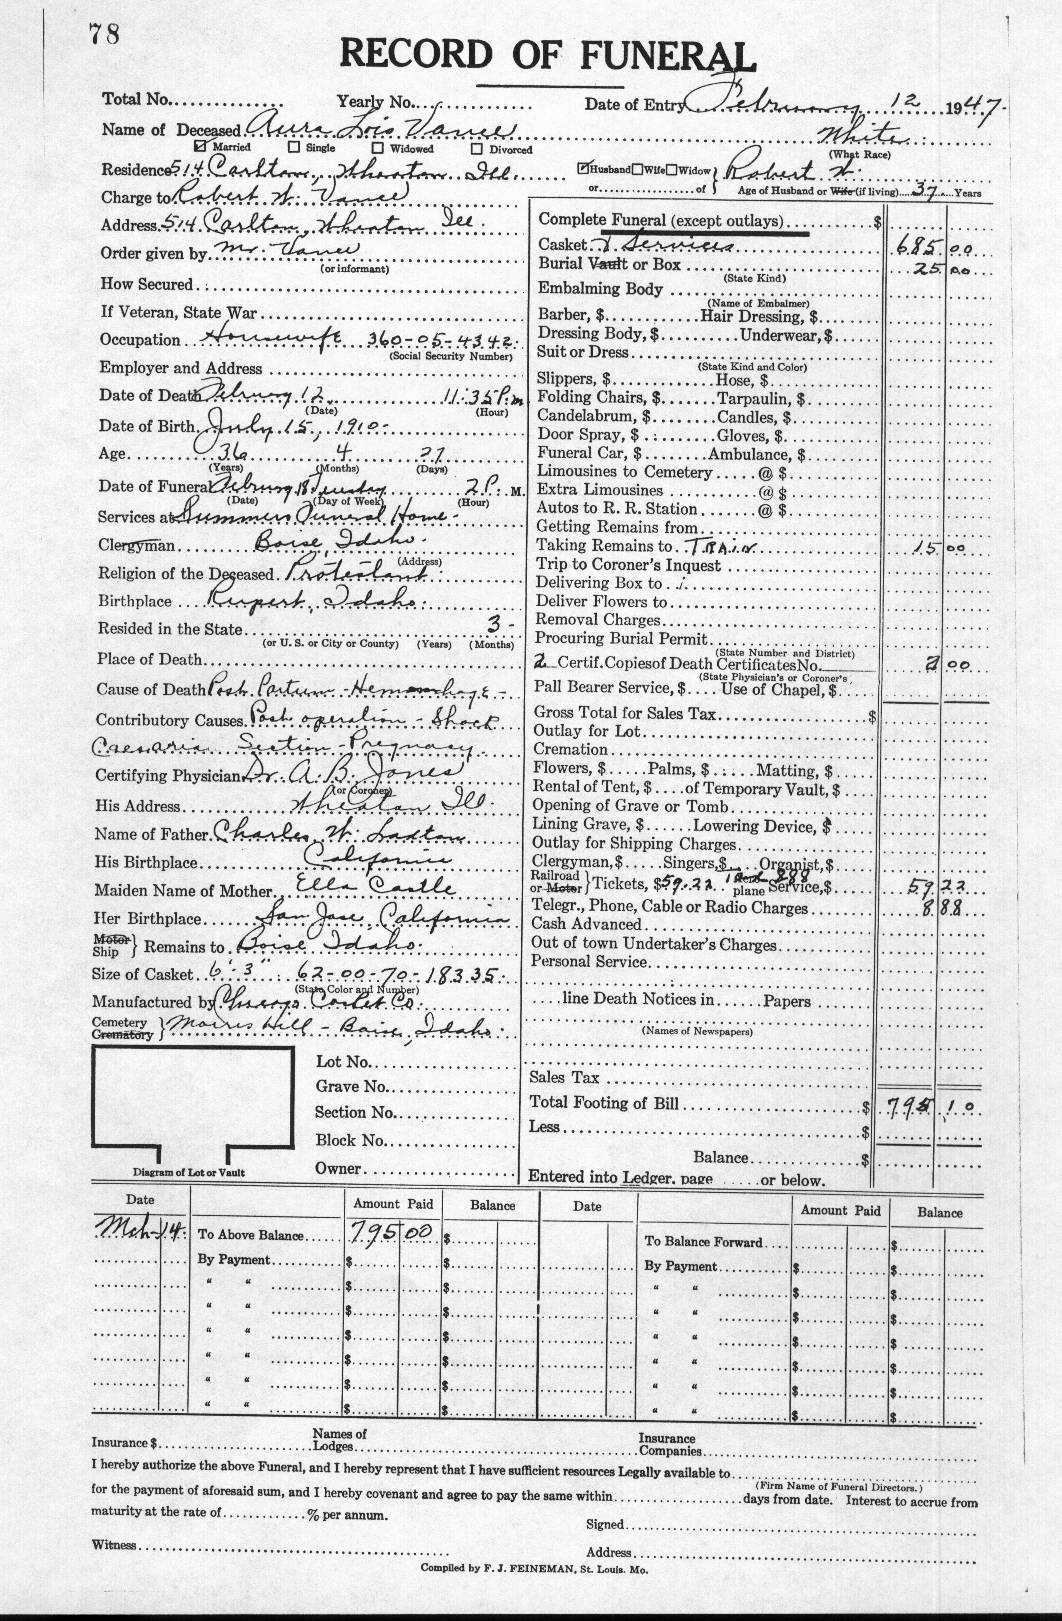 78
RECORD OF FUNERAL
Total No............... Yearly No............... Date of Entry February 12 1947.
Name of Deceased Aura Lois Vance White
☑ Married ☐ Single ☐ Widowed ☐ Divorced (What Race)
Residence 514 Carlton, Wheaton Ill. ☑Husband☐Wife☐Widow or....................of } Robert W.
Age of Husband or Wife (if living)....37....Years
Charge to Robert W. Vance
Address. 514 Carlton, Wheaton Ill.
Order given by Mr. Vance
(or informant)
How Secured.
If Veteran, State War
Occupation Housewife 360-05-4342.
(Social Security Number)
Employer and Address
Date of Death February 12. 11:35 P.m
(Date) (Hour)
Date of Birth. July 15, 1910-
Age 36 4 27
(Years) (Months) (Days)
Date of Funeral February 18 Tuesday 2 P. M.
(Date) (Day of Week) (Hour)
Services at Summers Funeral Home-
Clergyman Boise, Idaho.
(Address)
Religion of the Deceased. Protestant.
Birthplace Rupert, Idaho.
Resided in the State 3-
(or U. S. or City or County) (Years) (Months)
Place of Death
Cause of Death Post Partum-Hemorrhage-
Contributory Causes. Post operation-Shock
Caesaria Section-Pregnacy.
Certifying Physician Dr. A. B. Jones
(or Coroner)
His Address Wheaton Ill.
Name of Father. Charles W.
His Birthplace California
Maiden Name of Mother. Ella Castle
Her Birthplace San Jose, California
Motor Ship } Remains to Boise Idaho.
Size of Casket 6'-3" 62-00-70-18335.
(State Color and Number)
Manufactured by Chicago Casket Co.
Cemetery Crematory } Morris Hill-Boise, Idaho.
Diagram of Lot or Vault
Lot No.
Grave No.
Section No.
Block No.
Owner
Complete Funeral (except outlays) $
Casket & Services 685 00
Burial Vault or Box 25 00
(State Kind)
Embalming Body
(Name of Embalmer)
Barber, $............Hair Dressing, $
Dressing Body, $..........Underwear, $
Suit or Dress
(State Kind and Color)
Slippers, $.............Hose, $
Folding Chairs, $.......Tarpaulin, $
Candelabrum, $........Candles, $
Door Spray, $.........Gloves, $
Funeral Car, $........Ambulance, $
Limousines to Cemetery.....@ $
Extra Limousines..........@ $
Autos to R. R. Station.......@ $
Getting Remains from
Taking Remains to. TRAIN. 15 00
Trip to Coroner's Inquest
Delivering Box to
Deliver Flowers to
Removal Charges
Procuring Burial Permit
(State Number and District)
2 Certif. Copies of Death Certificates No. 2 00
(State Physician's or Coroner's)
Pall Bearer Service, $.....Use of Chapel, $
Gross Total for Sales Tax $
Outlay for Lot
Cremation
Flowers, $.....Palms, $.....Matting, $
Rental of Tent, $....of Temporary Vault, $
Opening of Grave or Tomb
Lining Grave, $......Lowering Device, $
Outlay for Shipping Charges
Clergyman, $.....Singers, $....Organist, $
Railroad or Motor } Tickets, $59.22. plane Service, $ 888 59 22
Telegr., Phone, Cable or Radio Charges 8 88
Cash Advanced
Out of town Undertaker's Charges
Personal Service
....line Death Notices in......Papers
(Names of Newspapers)
Sales Tax
Total Footing of Bill $ 795 10
Less $
Balance $
Entered into Ledger, page.....or below.
Date Amount Paid Balance Date Amount Paid Balance
Mch-14. To Above Balance 795 00 $ To Balance Forward $
By Payment $ $ By Payment $ $
“ “ $ $ “ “ $ $
“ “ $ $ “ “ $ $
“ “ $ $ “ “ $ $
“ “ $ $ “ “ $ $
“ “ $ $ “ “ $ $
“ “ $ $ “ “ $ $
Insurance $ Names of Lodges Insurance Companies
I hereby authorize the above Funeral, and I hereby represent that I have sufficient resources Legally available to
(Firm Name of Funeral Directors.)
for the payment of aforesaid sum, and I hereby covenant and agree to pay the same within....................days from date. Interest to accrue from
maturity at the rate of.............% per annum.
Signed
Witness Address
Compiled by F. J. FEINEMAN, St. Louis. Mo.